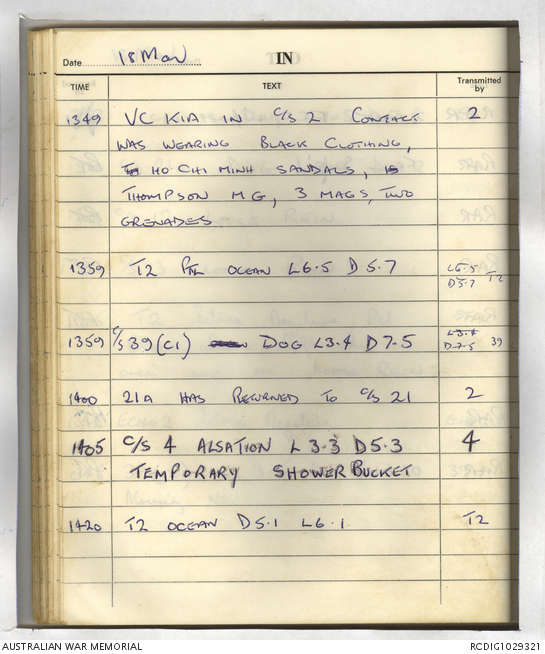 Date 18 Nov IN
TIME TEXT Transmitted by
1349 VC KIA IN C/S 2 CONTACT 2
WAS WEARING BLACK CLOTHING,
HO CHI MINH SANDALS,
THOMPSON M G, 3 MAGS, TWO
GRENADES
1359 T2 PTL OCEAN L6.5 D5.7 L6.5 D5.7 T2
1359 C/S 39 (C1) DOG L3.4 D7.5 L3.4 D7.5 39
1400 21A HAS RETURNED TO C/S 21 2
1405 C/S 4 ALSATION L3.3 D5.3 4
TEMPORARY SHOWER BUCKET
1420 T2 OCEAN D5.1 L6.1 T2
AUSTRALIAN WAR MEMORIAL RCDIG1029321